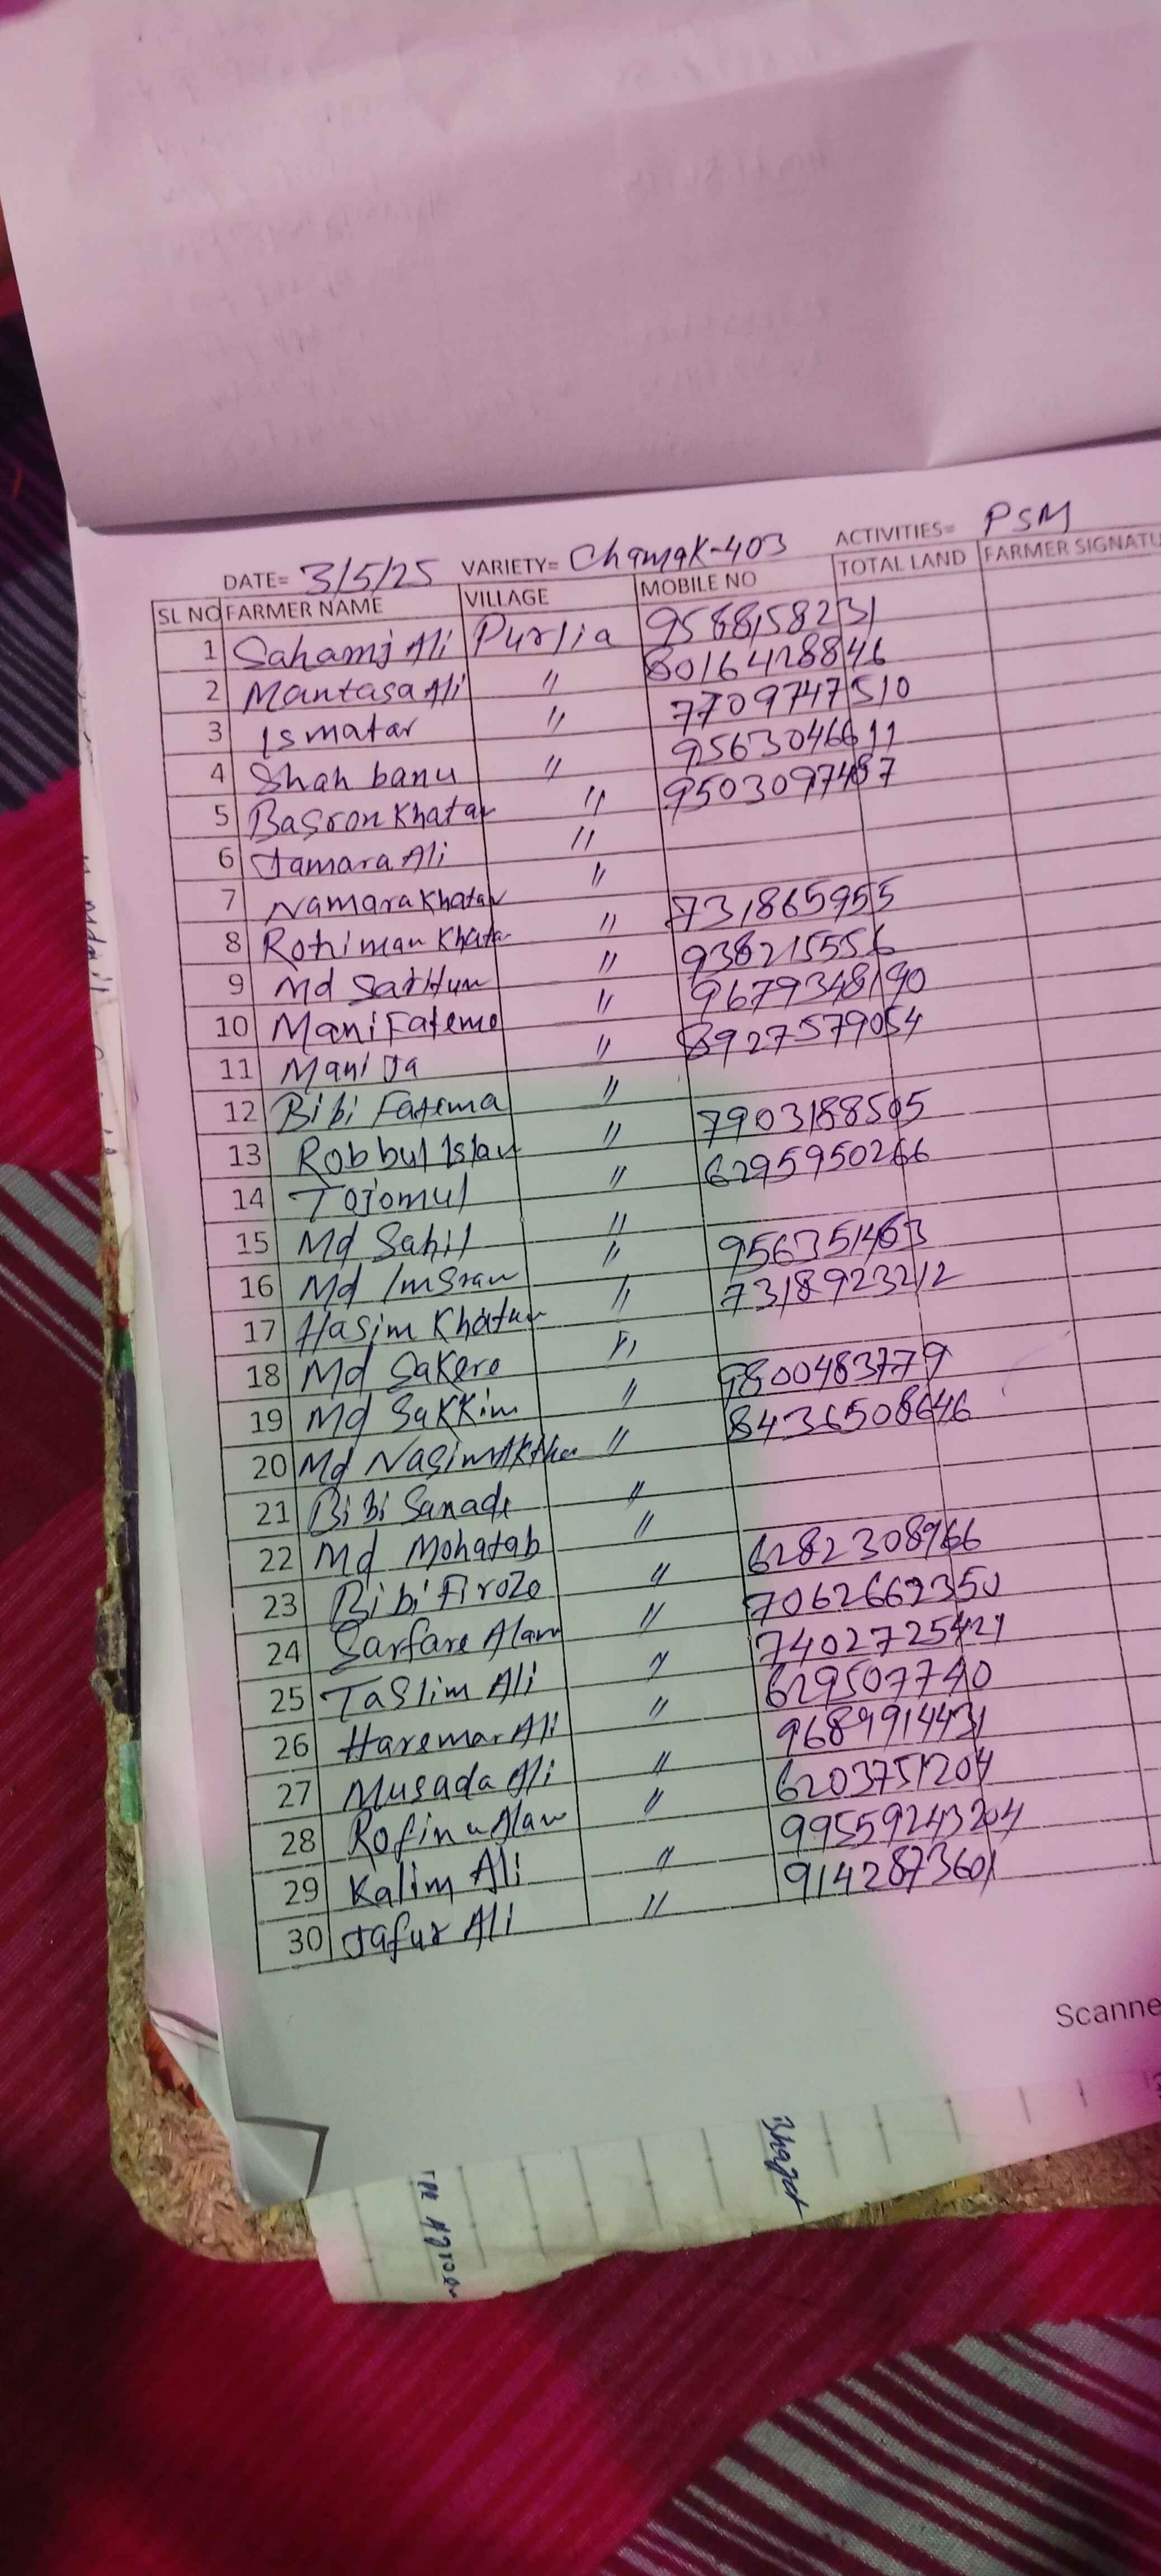 DATE= 3/5/25 VARIETY= Chamak-403 ACTIVITIES= PSM
SL NO FARMER NAME VILLAGE MOBILE NO TOTAL LAND FARMER SIGNATU
1 Sahamj Ali Purlia 9588158231
2 Mantasa Ali " 8016428846
3 Ismatar " 7709747510
4 Shah banu " 9563046611
5 Basron Khatar " 9503097487
6 Jamara Ali "
7 Namara Khatar " 731865955
8 Rohiman Khatar " 938215556
9 Md " 9679348190
10 Mani Fateme " 8927579054
11 Mani Ja "
12 Bibi Fatema " 7903188505
13 Robbul Islam " 6295950266
14 Tojomul "
15 Md Sahil " 956351463
16 Md Imsran " 7318923212
17 Hasim Khatun "
18 Md Sakere " 9800483779
19 Md Sakkim " 8436508646
20 Md Nasim Akther "
21 Bibi Sanade "
22 Md Mohatab " 6282308966
23 Bibi Firoze " 7062662350
24 Sarfare Alam " 7402725421
25 Taslim Ali " 629507740
26 Haremar Ali " 9689914431
27 Musada Ali " 6203751204
28 Rofinu Alam " 99559243204
29 Kalim Ali " 9142873601
30 Jafur Ali "
Scanne